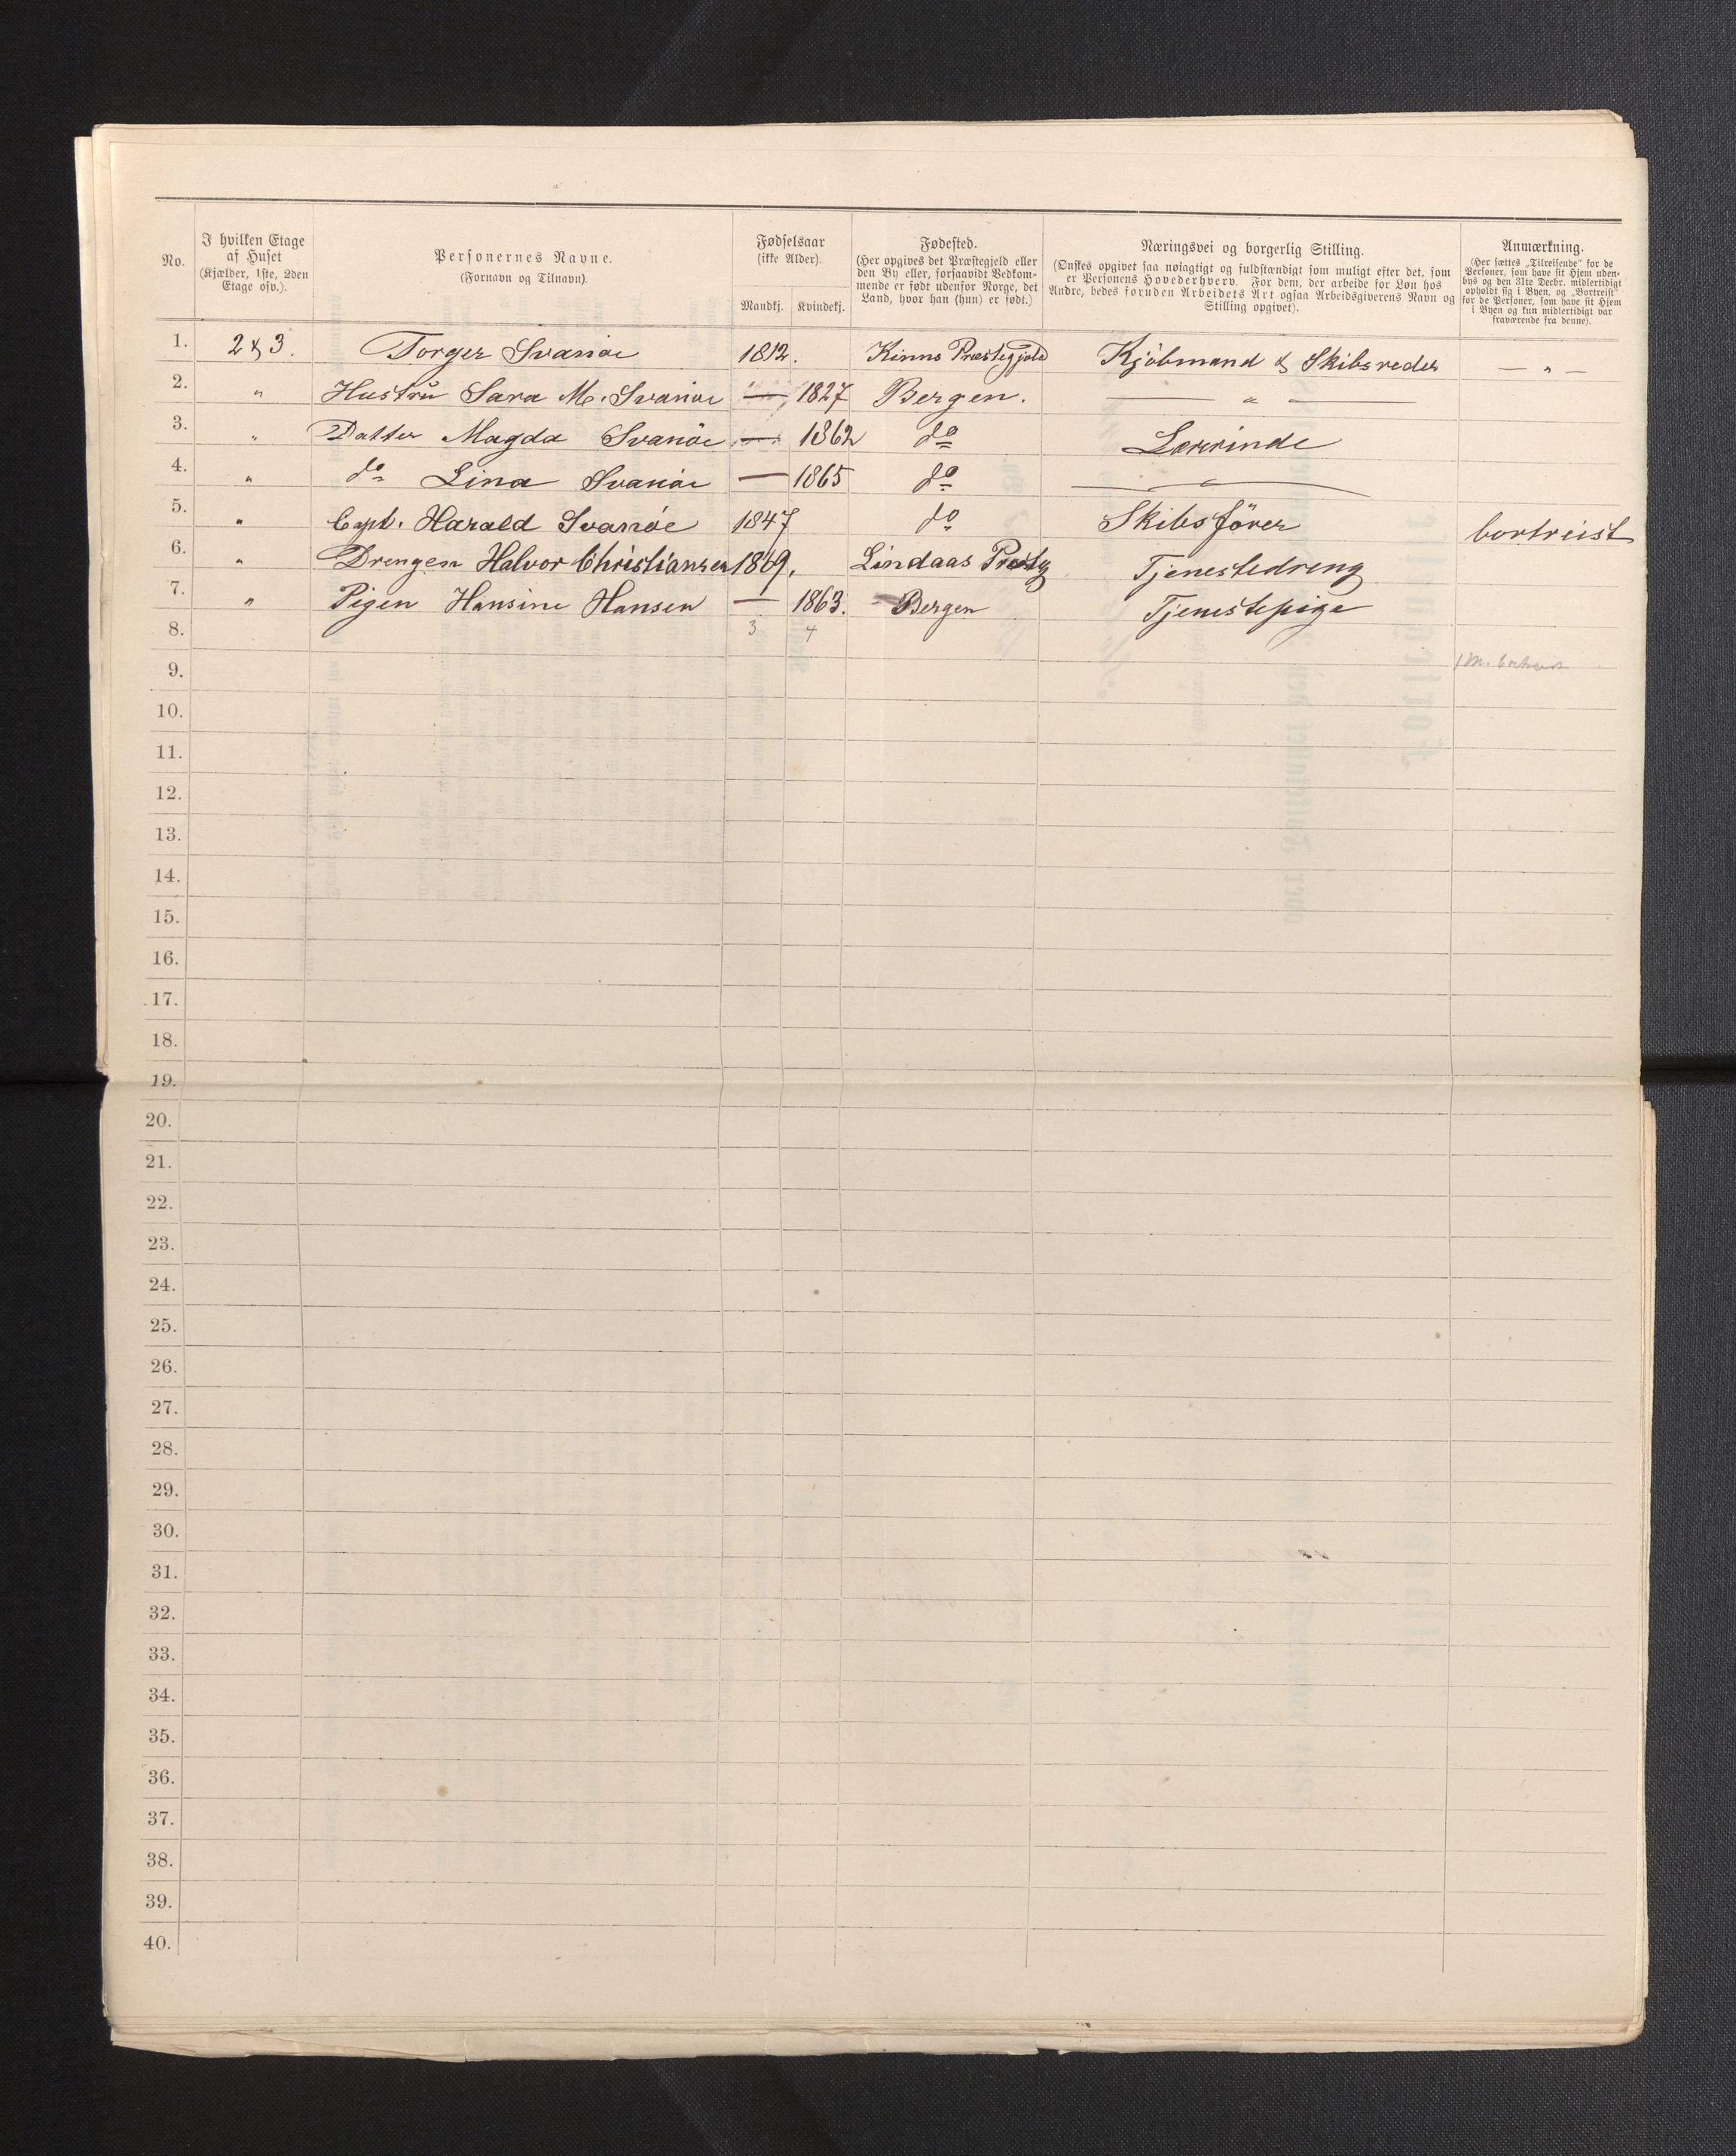 No.
I hvilken Etage
af Huset
(Kjælder, 1ste, 2den
Etage osv.).
Personernes Navne.
(Fornavn og Tilnavn).
Fødselsaar
(ikke Alder).
Mandkj. Kvindekj.
Fødested.
(Her opgives det Præstegjeld eller
den By eller, forsaavidt Vedkom-
mende er født udenfor Norge, det
Land, hvor han (hun) er født.)
Næringsvei og borgerlig Stilling.
(Ønskes opgivet saa nøiagtigt og fuldstændigt som muligt efter det, som
er Personens Hovederhverv. For dem, der arbeide for Løn hos
Andre, bedes foruden Arbeidets Art ogsaa Arbeidsgiverens Navn og
Stilling opgivet).
Anmærkning.
(Her sættes „Tilreisende“ for de
Personer, som have sit Hjem uden-
bys og den 31te Decbr. midlertidigt
opholdt sig i Byen, og „Bortreist“
for de Personer, som have sit Hjem
i Byen og kun midlertidigt var
fraværende fra denne).
1. 2 & 3. Torger Svanøe 1812. Kinns Præstegjeld Kjöbmand & Skibsreder — " —
2. " Hustru Sara M. Svanöe — 1827 Bergen. — " —
3. " Datter Magda Svanöe — 1862 do Lærerinde
4. " do Lina Svanöe — 1865 do — " —
5. " Capt. Harald Svanöe 1847 do Skibsförer bortreist
6. " Drengen Halvor Christiansen 1869. Lindaas Præstg Tjenestedreng
7. " Pigen Hansine Hansen — 1863. Bergen Tjenestepige
8. 3 4
9. 1 m. bortreist
10.
11.
12.
13.
14.
15.
16.
17.
18.
19.
20.
21.
22.
23.
24.
25.
26.
27.
28.
29.
30.
31.
32.
33.
34.
35.
36.
37.
38.
39.
40.